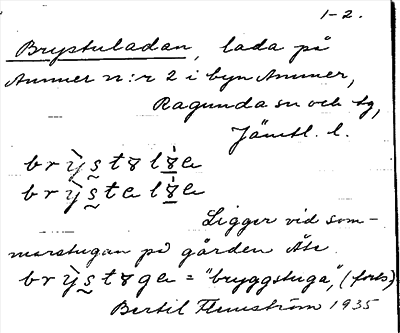 1-2.
Brystuladan, lada på
Ammer n:r 2 i byn Ammer,
Ragunda sn och tg,
Jämtl. l.
Ligger vid som-
marstugan på gården Åte
= "bryggstuga", (forts)
Bertil Flemström 1935